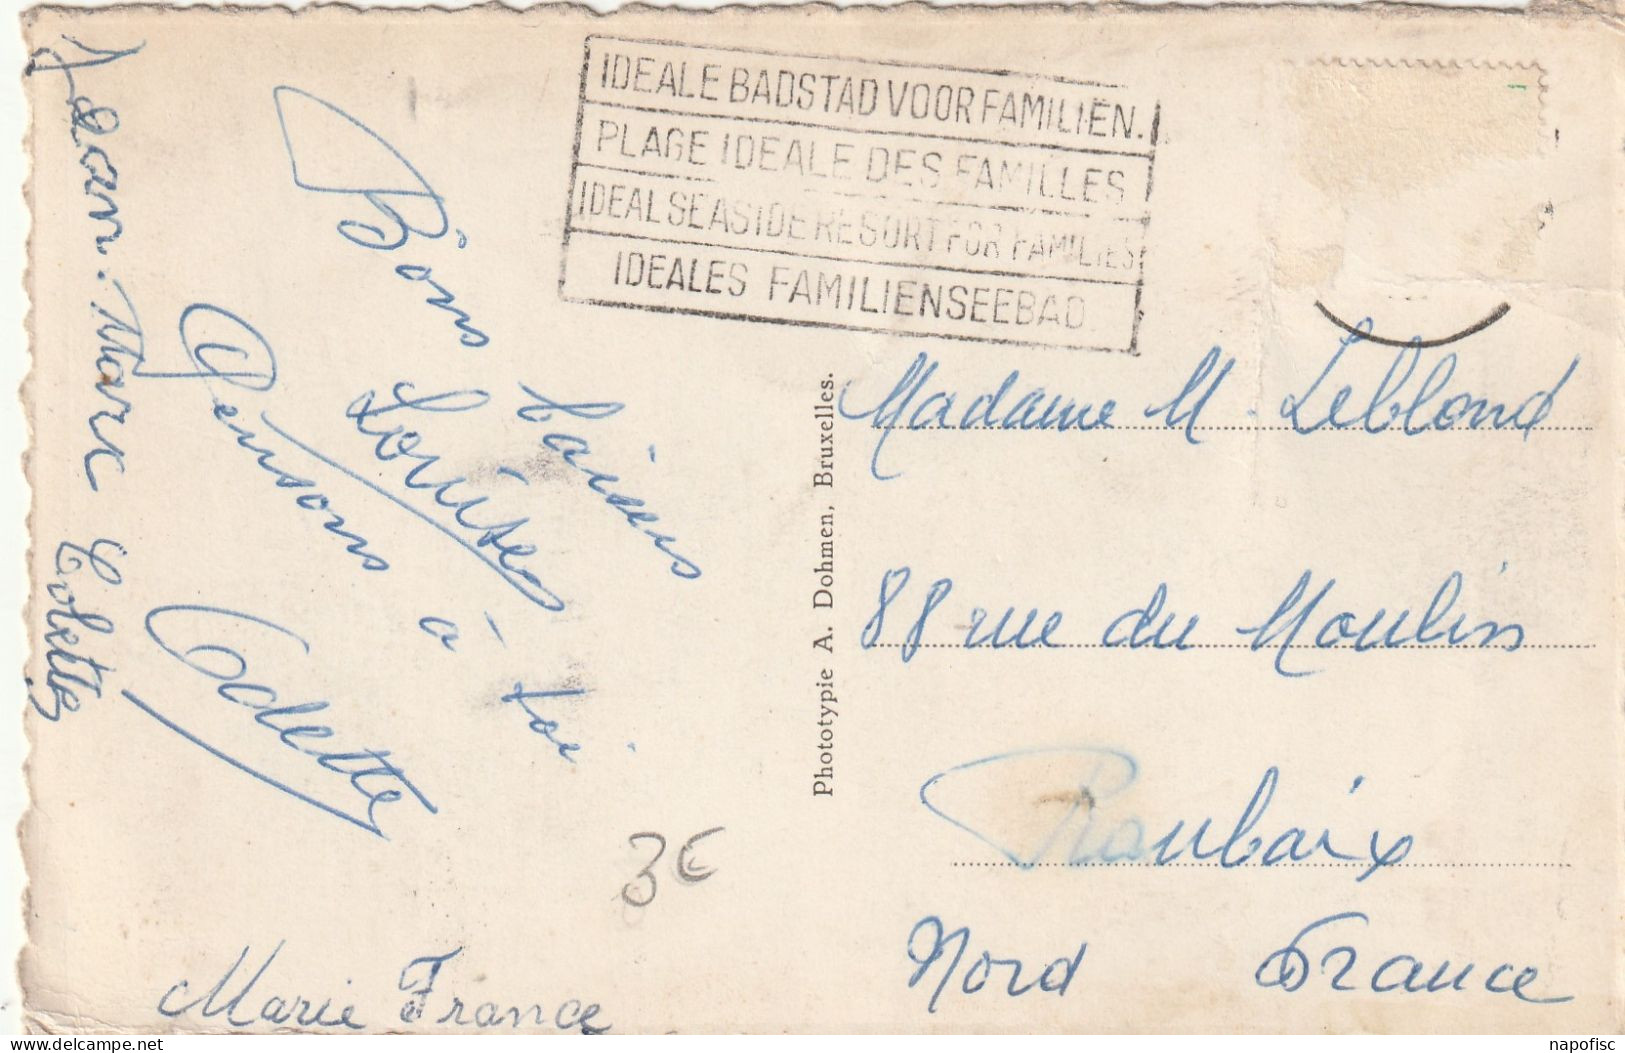 IDEALE BADSTAD VOOR FAMILIEN.
PLAGE IDEALE DES FAMILLES
IDEAL SEASIDE RESORT FOR FAMILIES
IDEALES FAMILIENSEEBAD
Jean. Marc Colette
Bons baisers
Louise
Pensons à toi
Odette
Marie France
3€
Phototypie A. Dohmen, Bruxelles.
Madame M. Leblond
88 rue du Moulin
Roubaix
Nord France
delcampe.net
napofisc